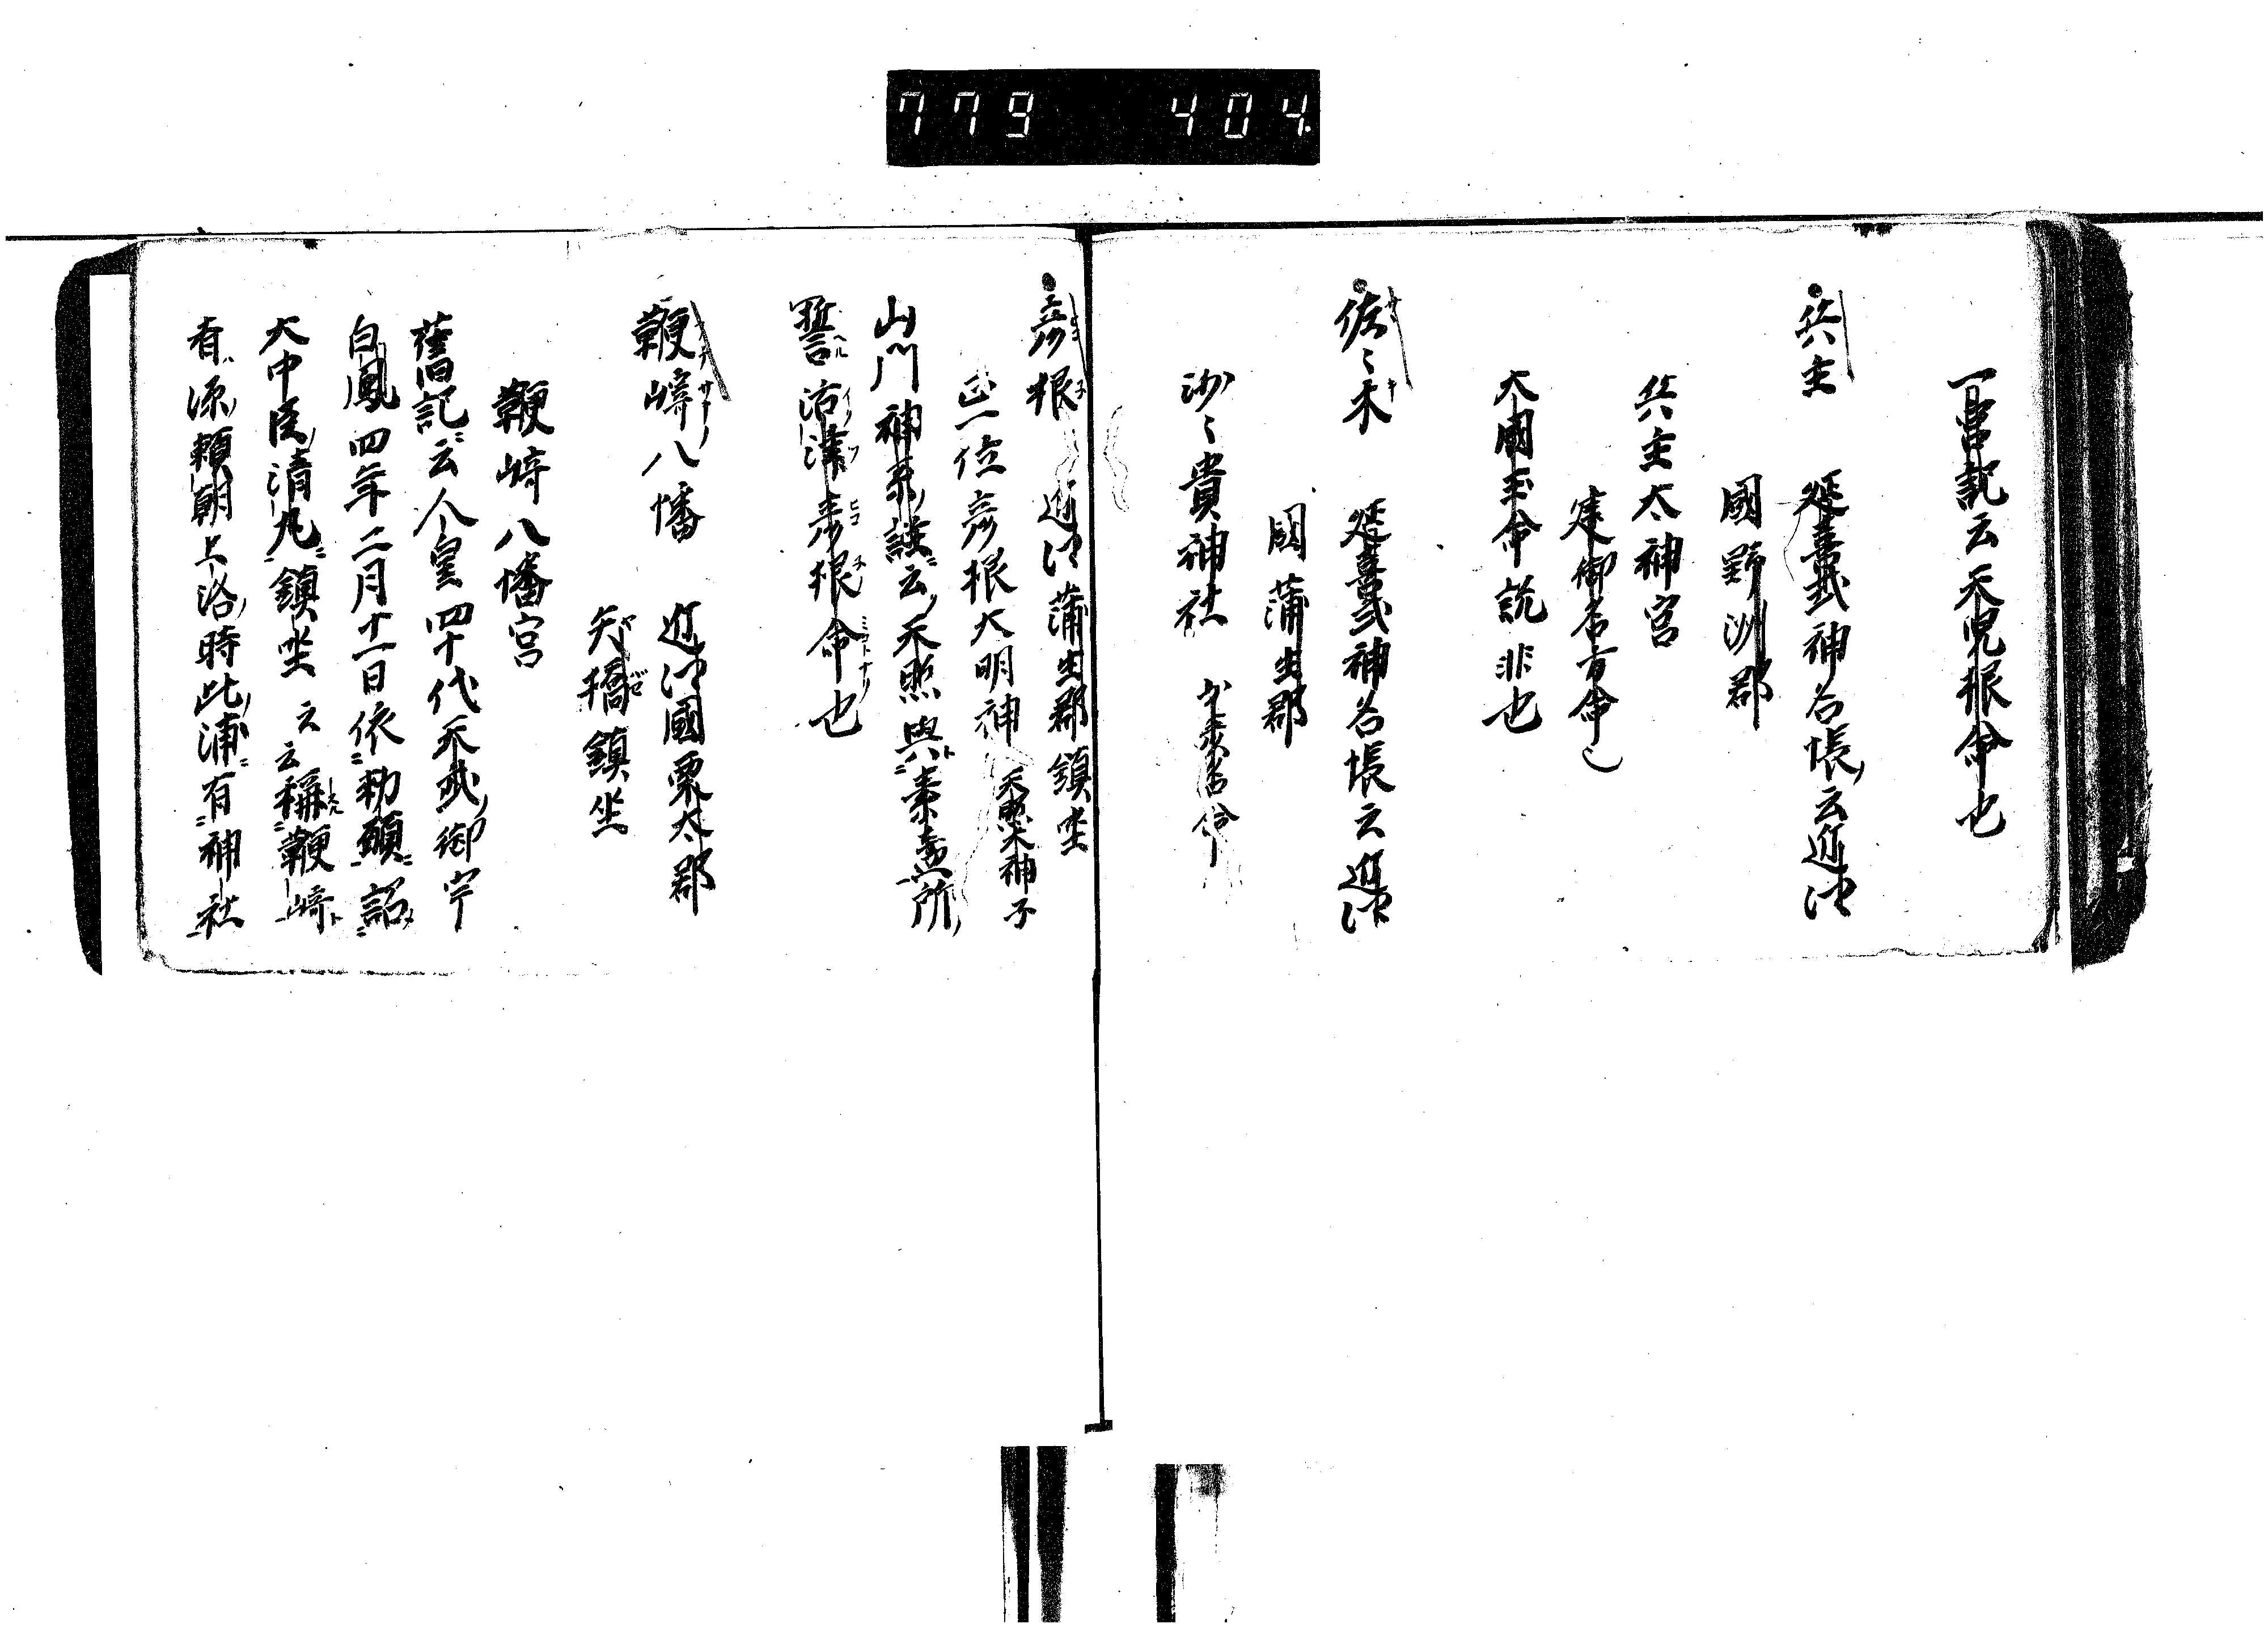 779 404
一書記云天児根命也
兵主 延喜式神名帳云近江
國野洲郡
兵主太神宮
建御名方命
大國玉命説非也
佐々木 延喜式神名帳云近江
國蒲生郡
沙々貴神社 少彦名命
彦根 近江蒲生郡鎮坐
正一位彦根大明神 天照太神子
山門神系談云天照與素盞所
誓活津彦根命也
鞭﨑八幡 近江國栗太郡
矢橋鎮坐
鞭崎八幡宮
舊記云人皇四十代天武御宇
白鳳四年二月十一日依勅願詔
大中臣清丸鎮坐云云稱鞭崎
者源頼朝上洛時此浦有神社